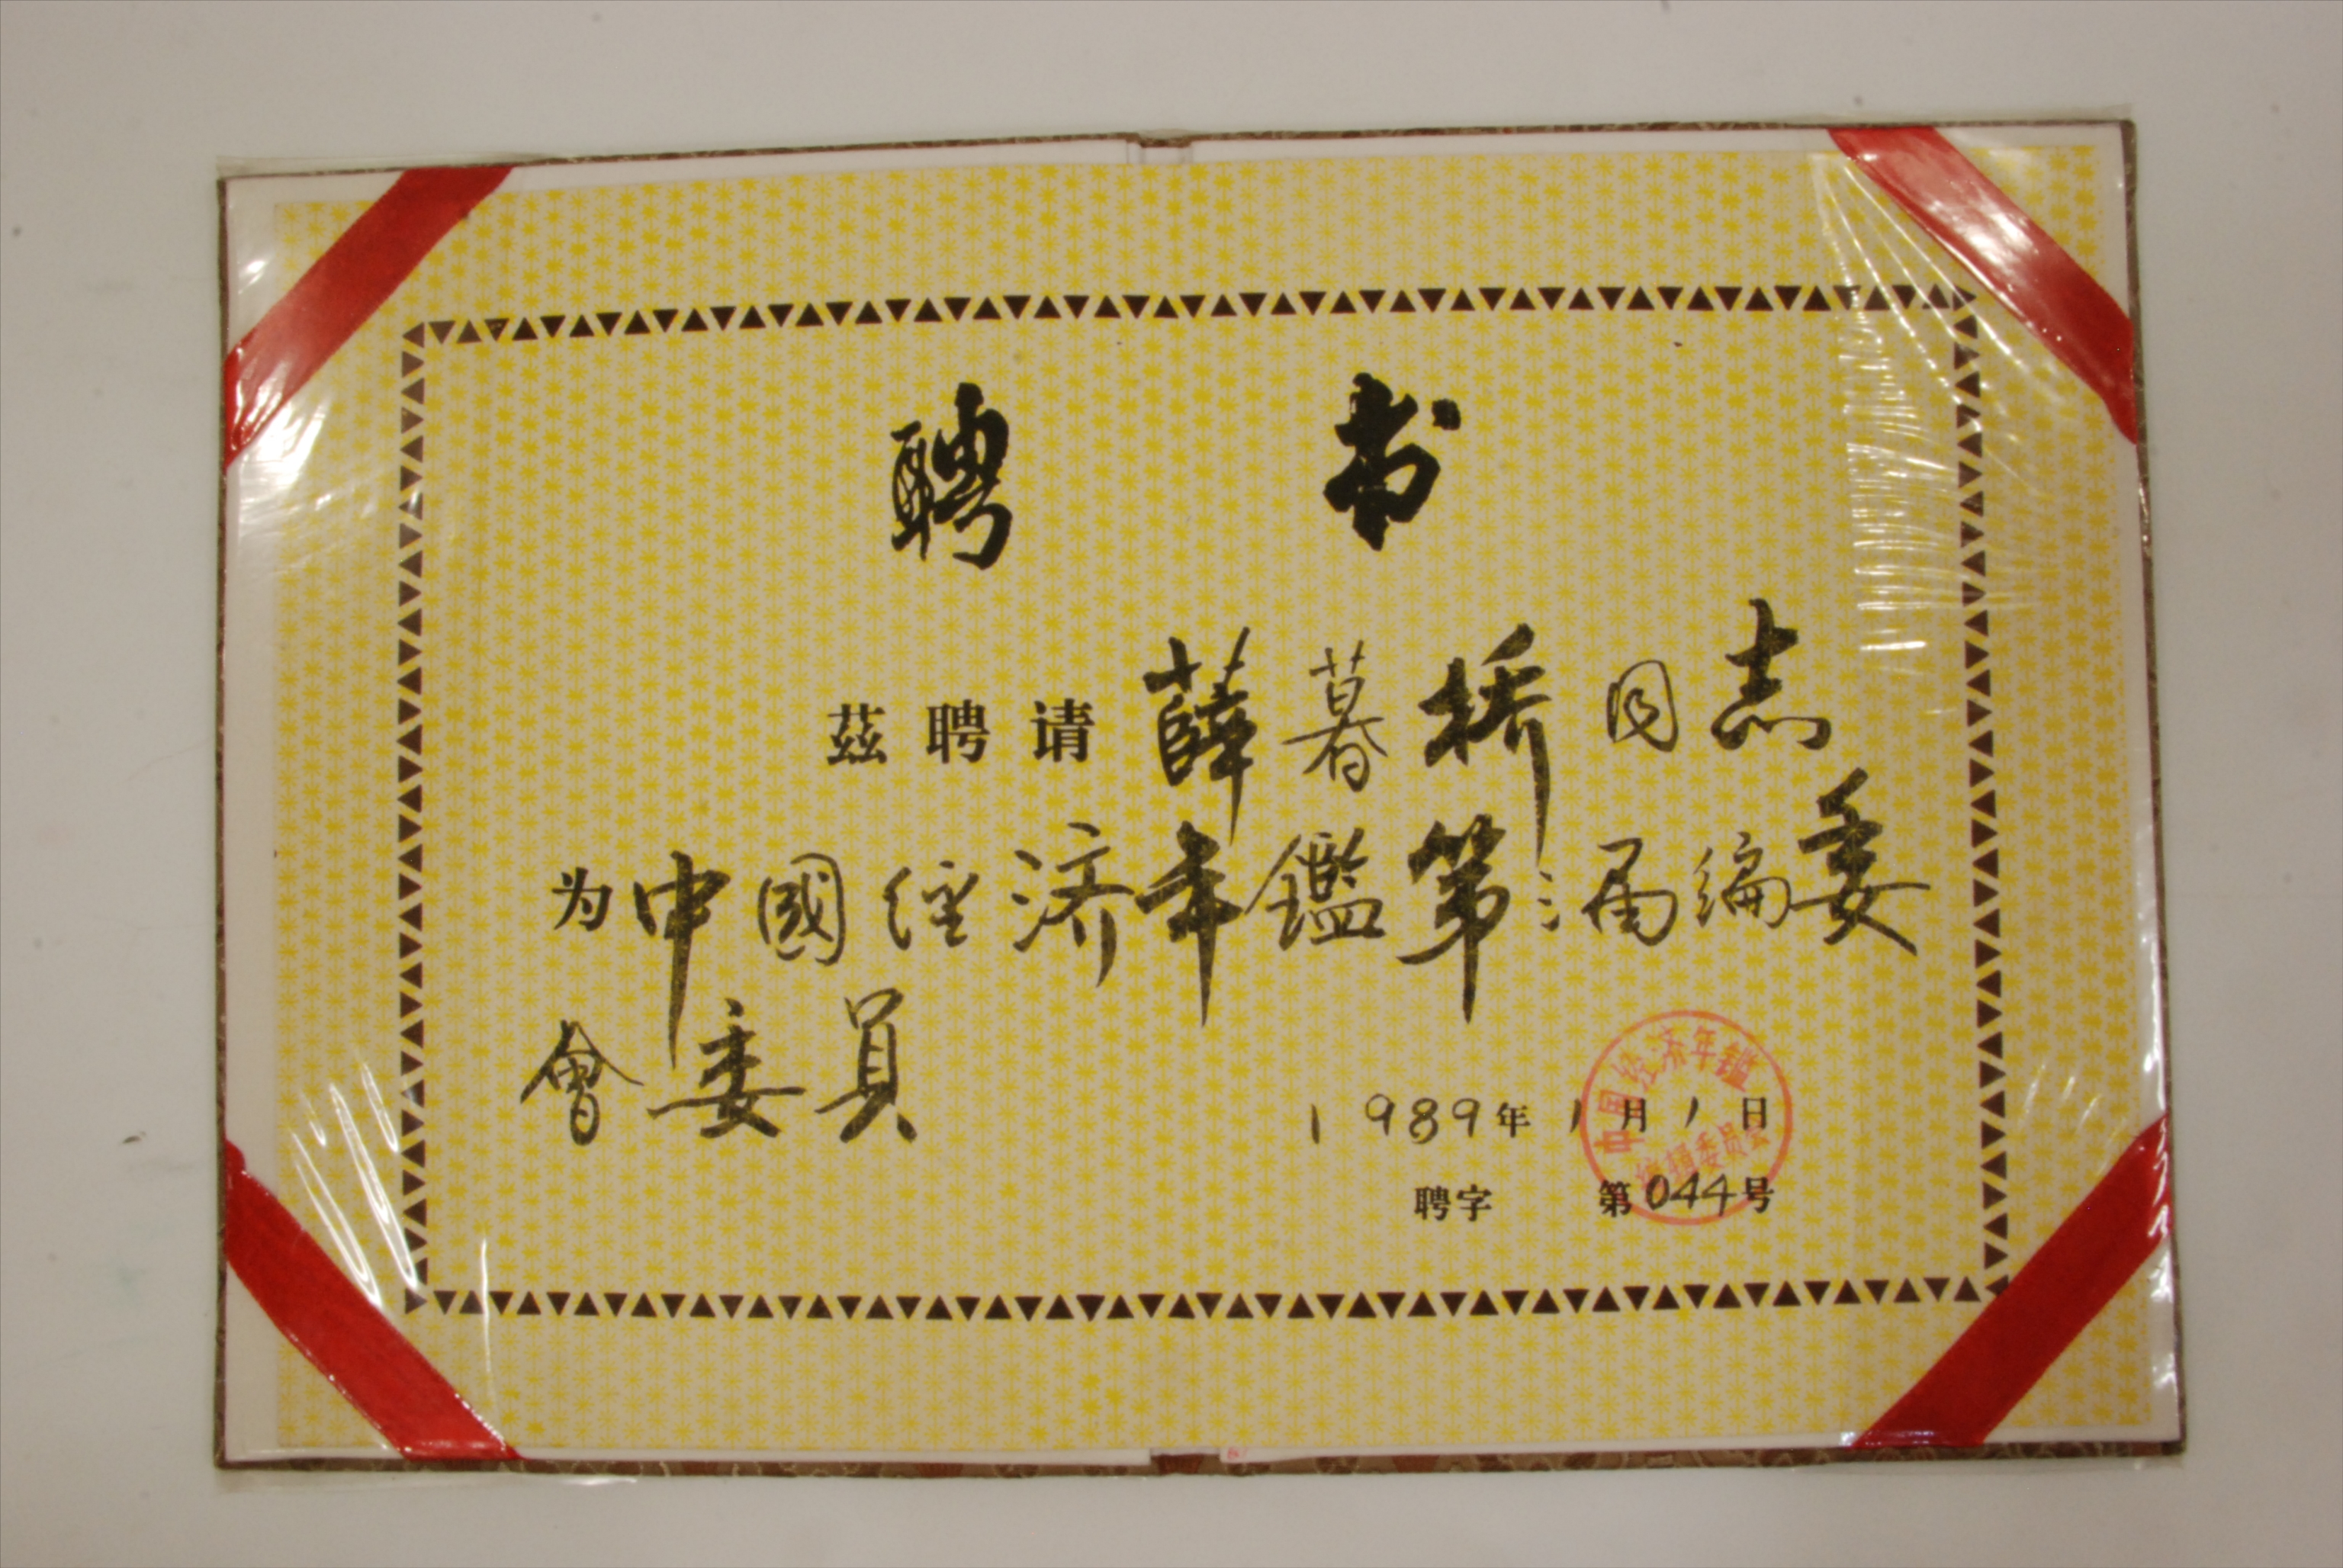 聘书
兹聘请薛暮桥同志
为中國经济年鑑第二届编委
會委員
1989年1月1日
聘字 第044号
中国经济年鑑
编辑委员会